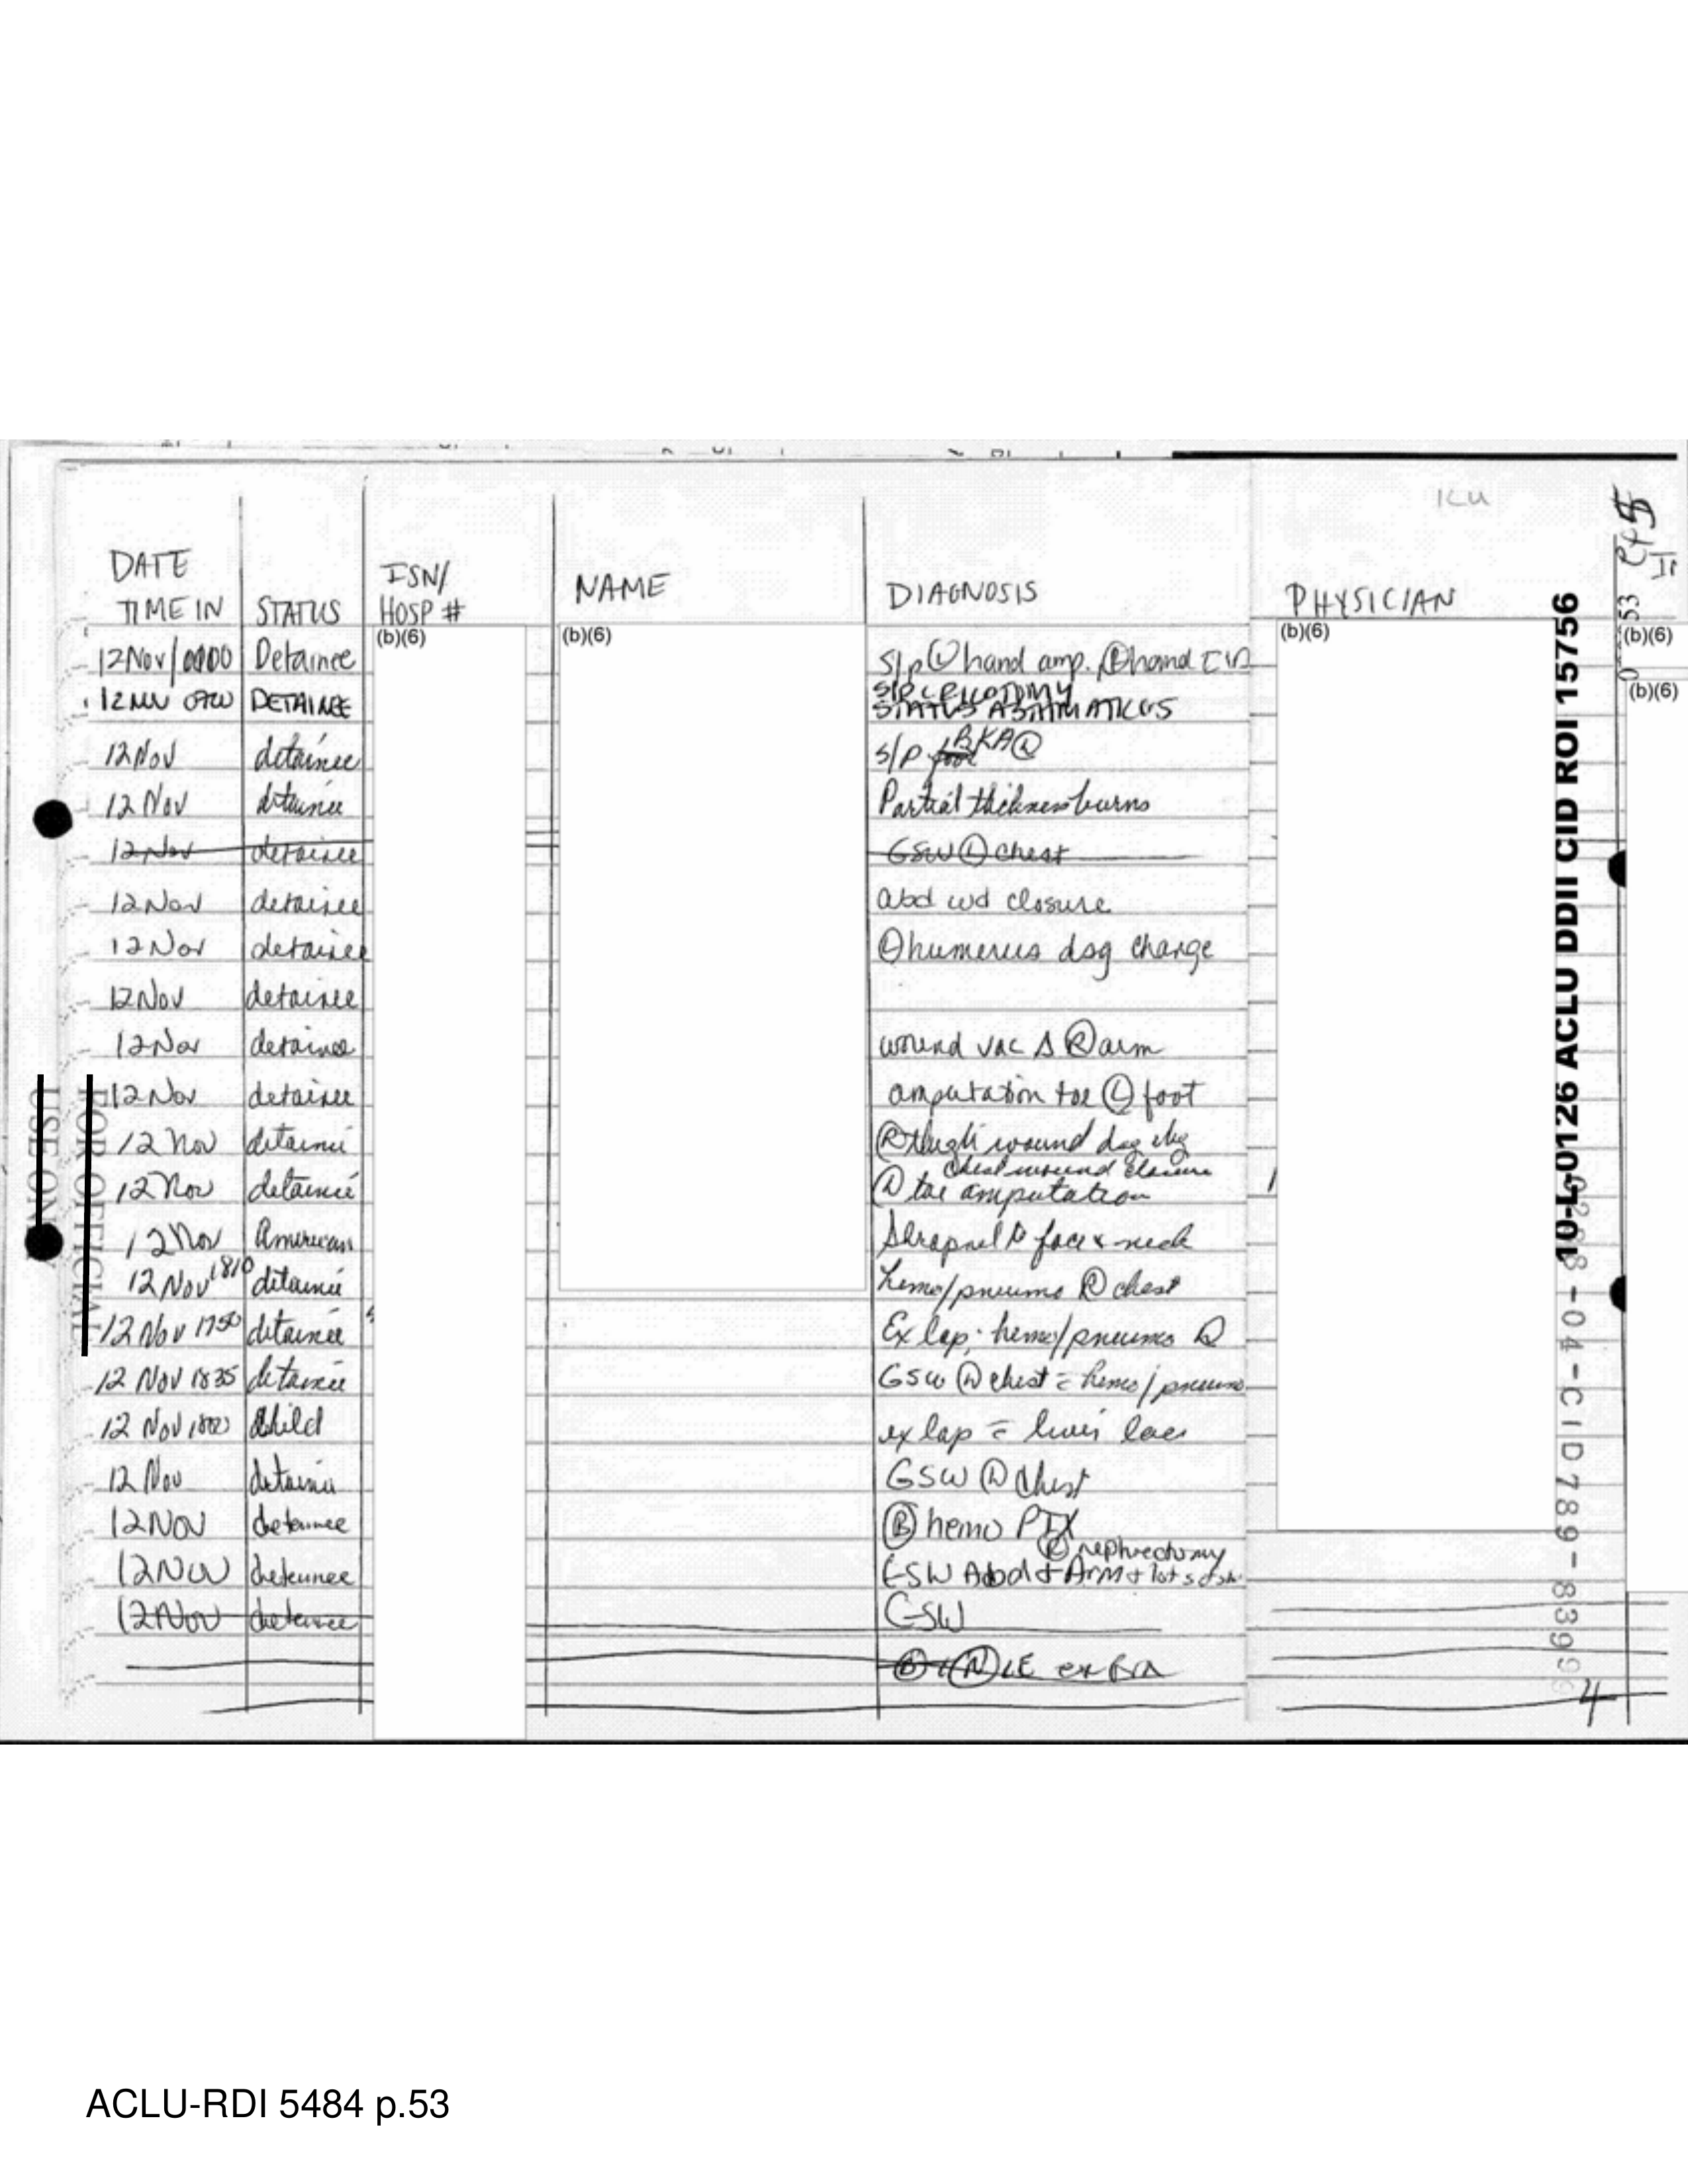 ICU
DATE TIME IN STATUS ISN/ HOSP # NAME DIAGNOSIS PHYSICIAN
(b)(6) (b)(6) (b)(6) (b)(6)
(b)(6)
12Nov/0000 Detainee S/p Ⓛ hand amp. hand
12 Nov DETAINEE S/P CRICOTOMY STATUS ASTHMATICUS
12 Nov detainee S/P BKA
12 Nov detainee Partial thickness burns
12 Nov detainee GSW Ⓛ chest
12 Nov detainee abd wd closure
12 Nov detainee humerus dsg change
12 Nov detainee
12 Nov detainee wound vac Δ Ⓡ arm
12 Nov detainee amputation toe Ⓛ foot
12 Nov detainee Ⓡ thigh wound dsg chg
12 Nov detainee chest wound closure toe amputation
12 Nov American Shrapnel to face & neck
12 Nov 1810 detainee hemo/pneumo Ⓡ chest
12 Nov 1750 detainee Ex lap; hemo/pneumo
12 Nov 1835 detainee GSW chest hemo/pneumo
12 Nov 1800 child ex lap liver lac
12 Nov detainee GSW chest
12 NOV detainee Ⓑ hemo PTX
12 Nov detainee GSW Abd + Arm + nephrectomy
12 Nov detainee GSW
LE
FOR OFFICIAL
USE ONLY
10-L-0126 ACLU DDII CID ROI 15756
-04-CID789-8399
53
4
ACLU-RDI 5484 p.53